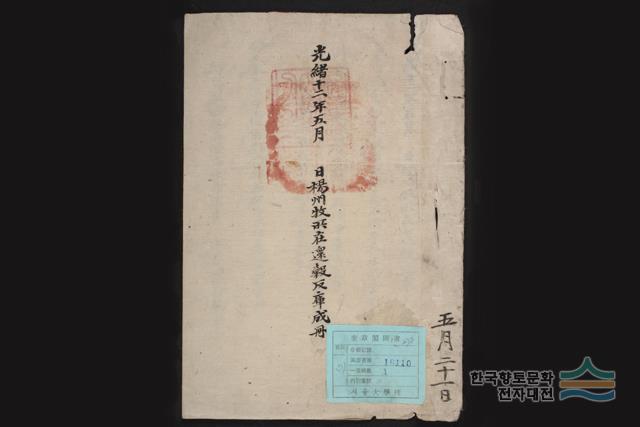 光緖十二年五月　日楊州牧所在還穀反庫成冊
五月二十一日
奎章閣圖書
16110
1
서울大學校
한국향토문화
전자대전